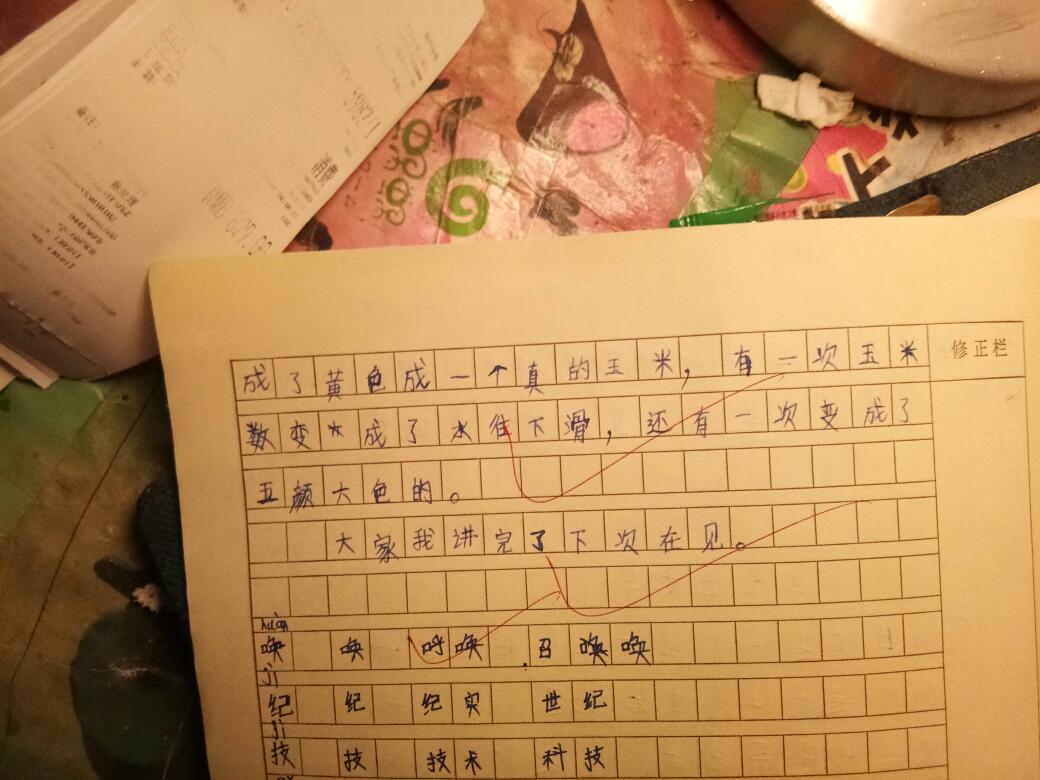 59871
消费
RMB 679.6
泡泡
修正栏
成了黄色成一个真的玉米,有一次玉米
数变大成了水往下滑,还有一次变成了
五颜大色的。
大家我讲完了下次在见。
huàn
唤 唤 呼唤 召唤唤
jì
纪 纪 纪实 世纪
jì
技 技 技术 科技